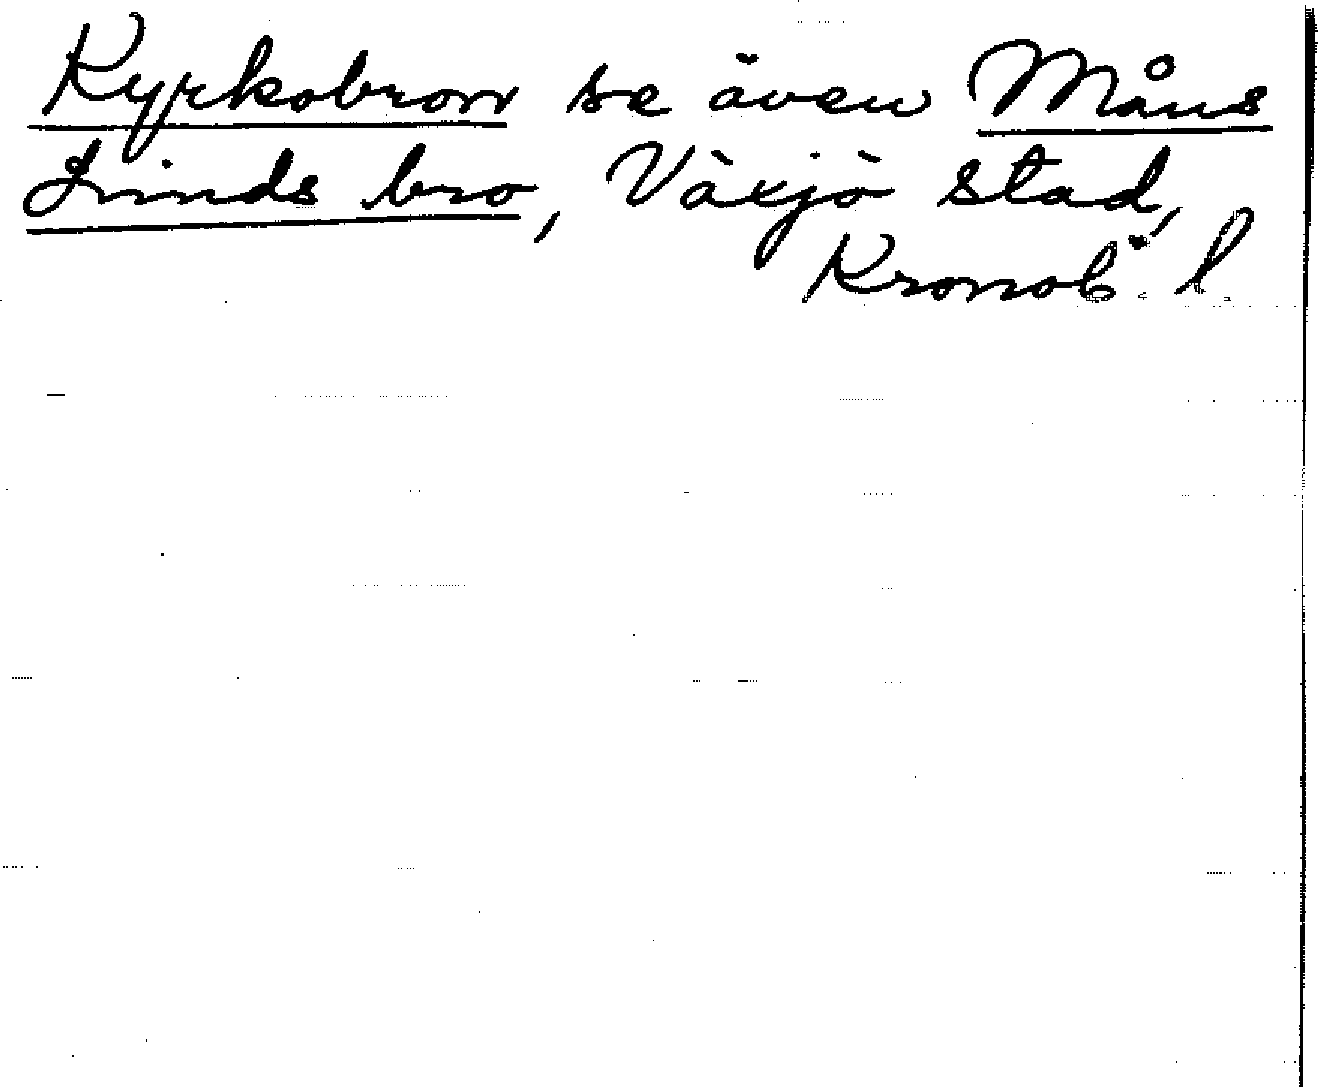 Kyrkobron se även Måns
Linds bro, Växjö stad,
Kronob. l.